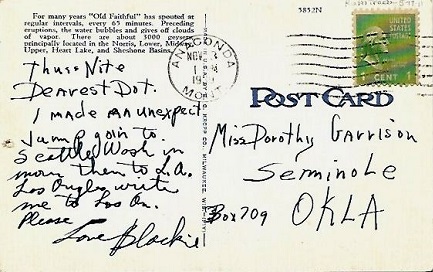 For many years "Old Faithful" has spouted at
regular intervals, every 65 minutes. Preceding
eruptions, the water bubbles and gives off clouds
of vapor. There are about 3000 geysers,
principally located in the Norris, Lower, Midway,
Upper, Heart Lake, and Shoshone Basins.
3852N
ANACONDA
NOV
1 PM
MONT.
UNITED STATES
1 CENT 1
POST CARD
E. C. KROPP CO., MILWAUKEE, WIS.
Thurs Nite
Dearest Dot.
I made an unexpect
Jump goin to
Seattle Wash in
morn then to L.A.
Los Angles write
me to Los An.
Please
Love Blackie
Miss Dorothy Garrison
Seminole
Box 709 OKLA